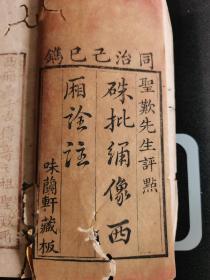 同治己巳鐫
聖歎先生評點
硃批繡像西
廂詮註
味蘭軒藏板